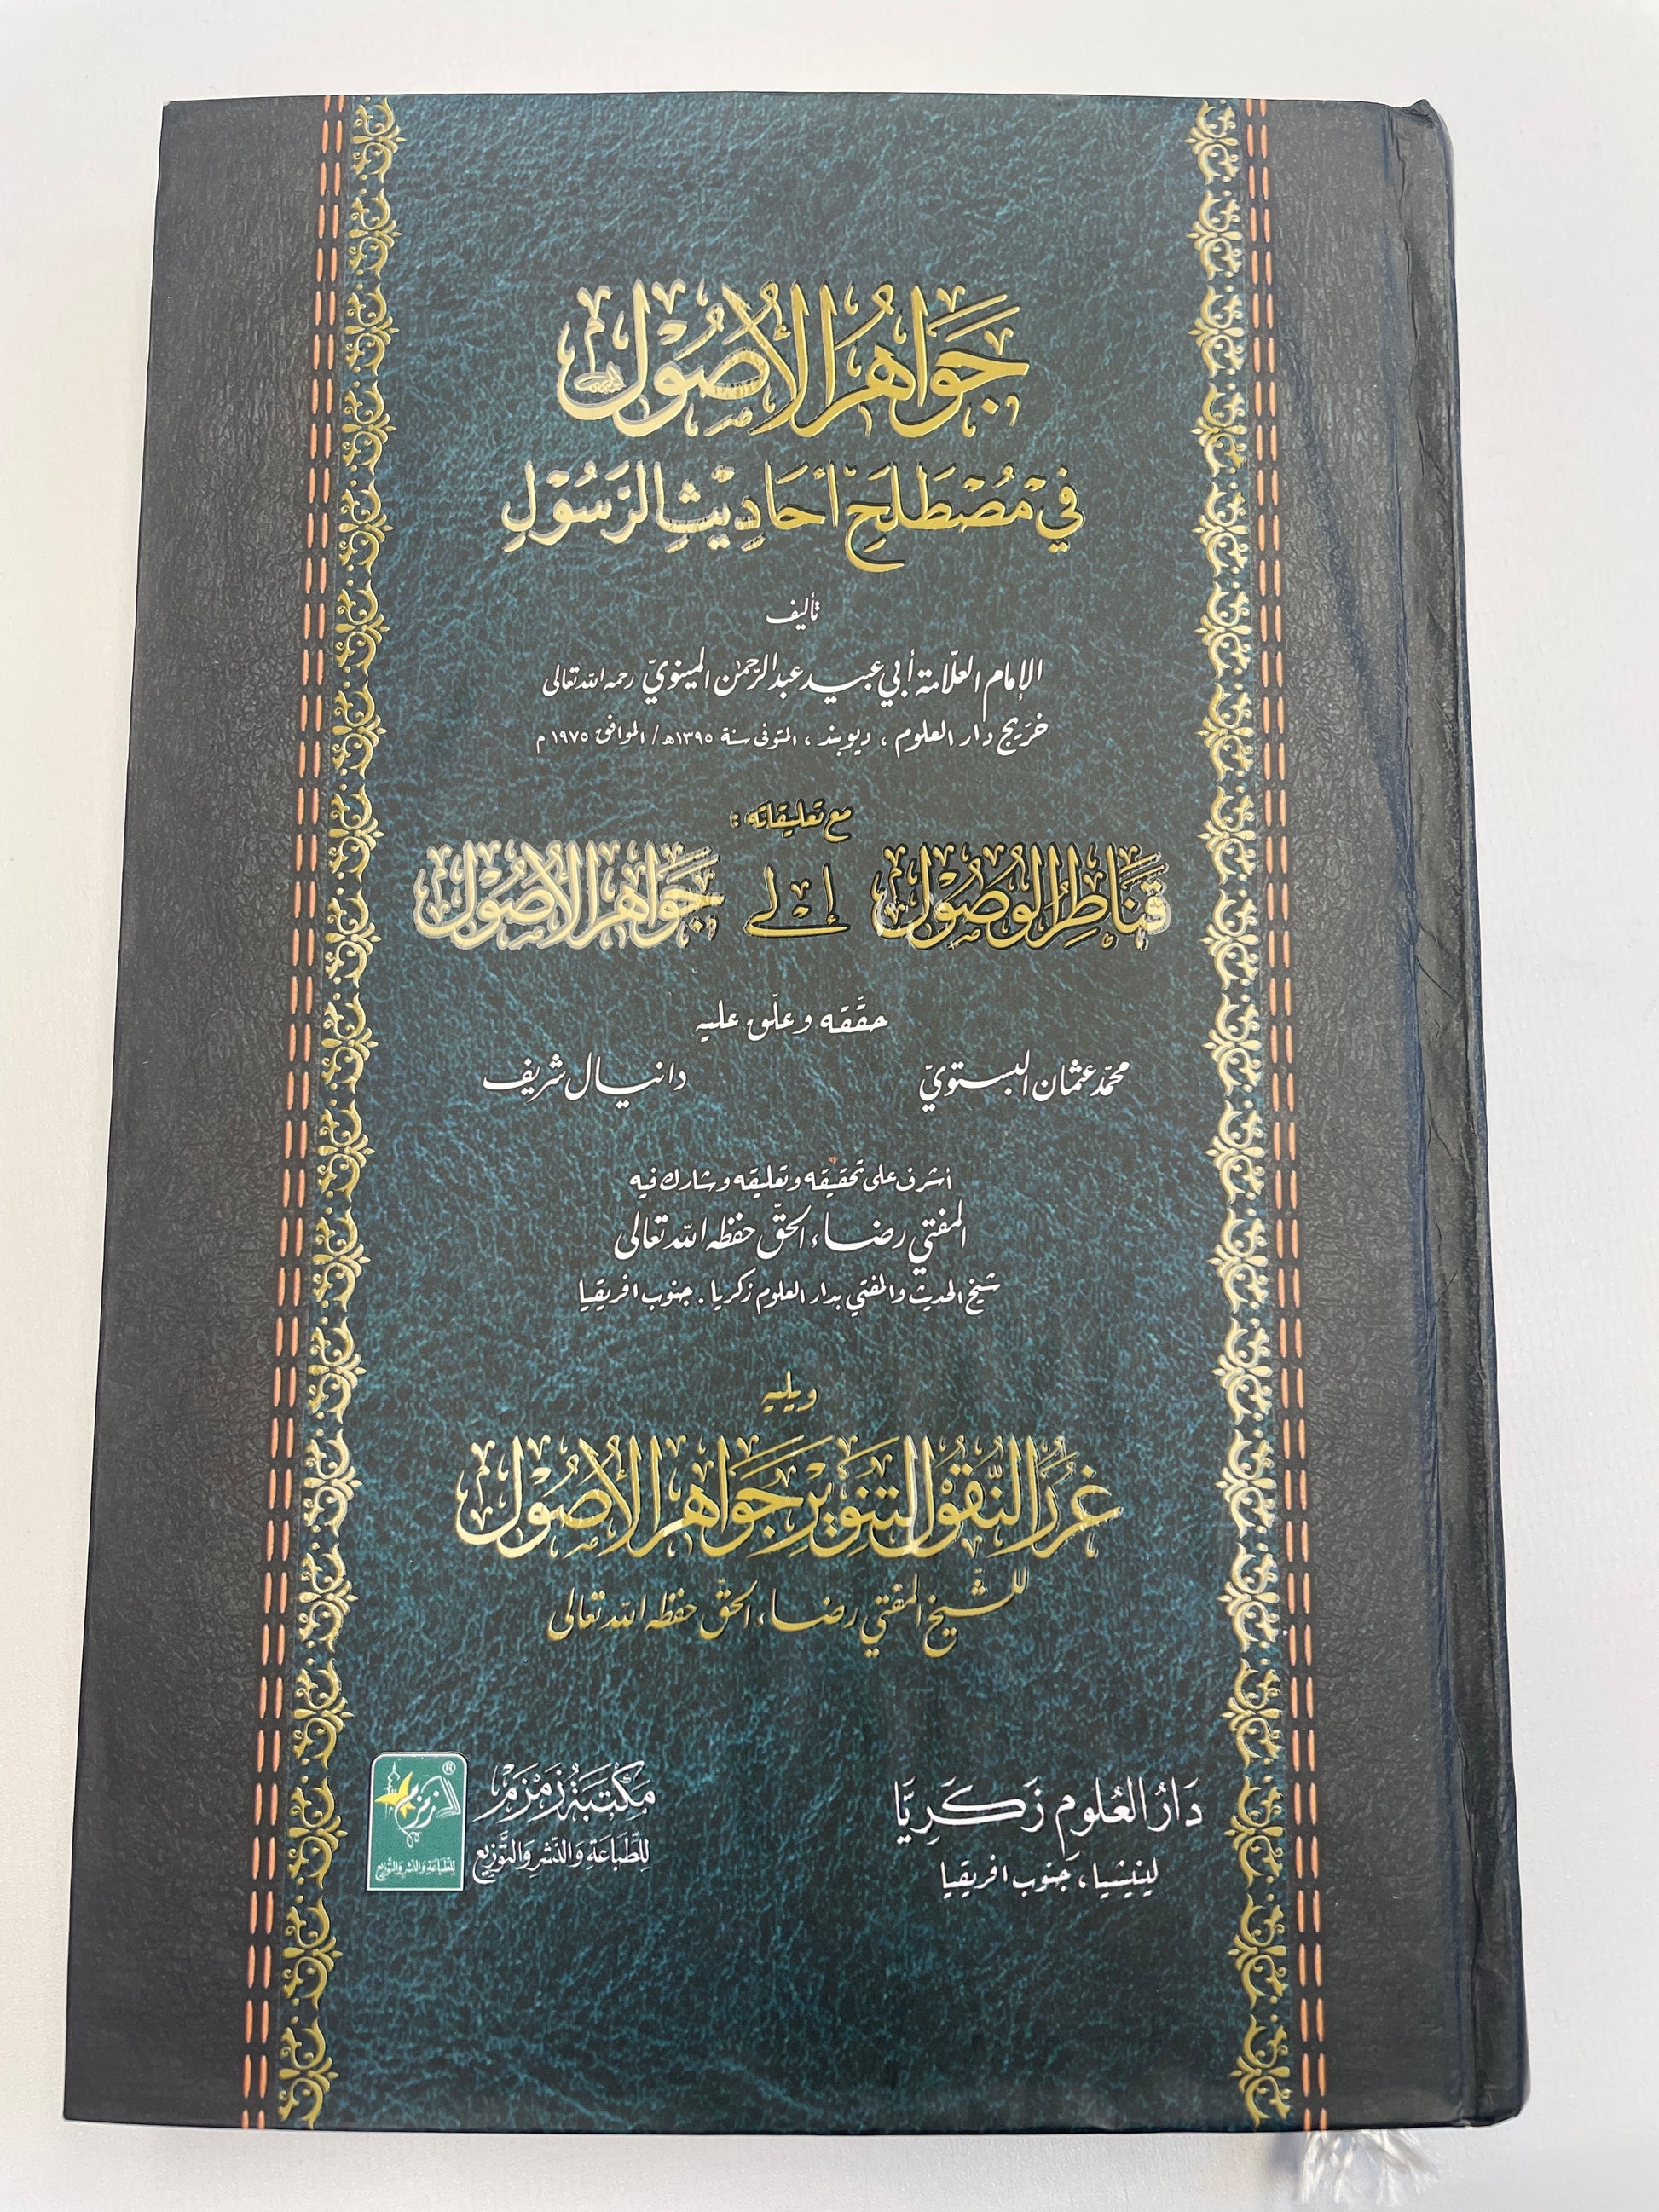 جَوَاهِرُ الْأُصُوْل
فِيْ مُصْطَلَحِ أَحَادِيْثِ الرَّسُوْلِ
تأليف
الإمام العلّامة أبي عبيد عبد الرّحمٰن المينويّ رحمه الله تعالى
خرّيج دار العلوم ، ديوبند ، المتوفى سنة ١٣٩٥هـ / الموافق ١٩٧٥م
مع تعليقاته :
قَنَاطِرُ الْوُصُوْل إِلى جَوَاهِرِ الْأُصُوْل
حقّقه وعلّق عليه
محمّد عثمان البستويّ دانيال شريف
أشرف على تحقيقه وتعليقه وشارك فيه
المفتي رضاء الحقّ حفظه الله تعالى
شيخ الحديث والمفتي بدار العلوم زكريا . جنوب افريقيا
ويليه
غُرَرُ النُّقُوْل لِتَنْوِيْرِ جَوَاهِرِ الْأُصُوْل
للشّيخ المفتي رضاء الحقّ حفظه الله تعالى
دَارُ العُلُومِ زَكَرِيَّا
لينيشيا ، جنوب افريقيا
مَكْتَبَةُ زَمْزَمْ
لِلطِّبَاعَةِ وَالنَّشْرِ وَالتَّوْزِيْعِ
زمزم ®
لِلطِّبَاعَةِ وَالنَّشْرِ وَالتَّوْزِيْعِ